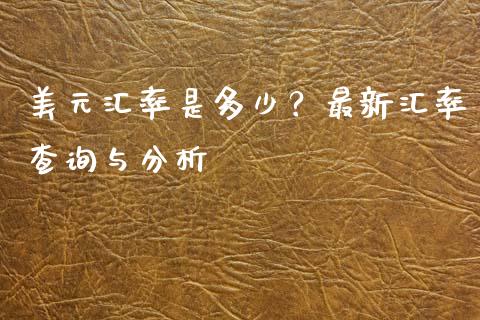 美元汇率是多少？最新汇率
查询与分析